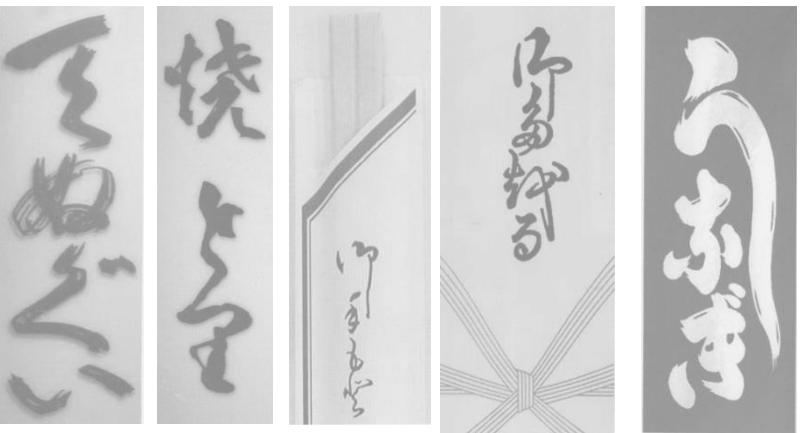 てぬぐい
焼とり
御手もと
御多越る
うなぎ